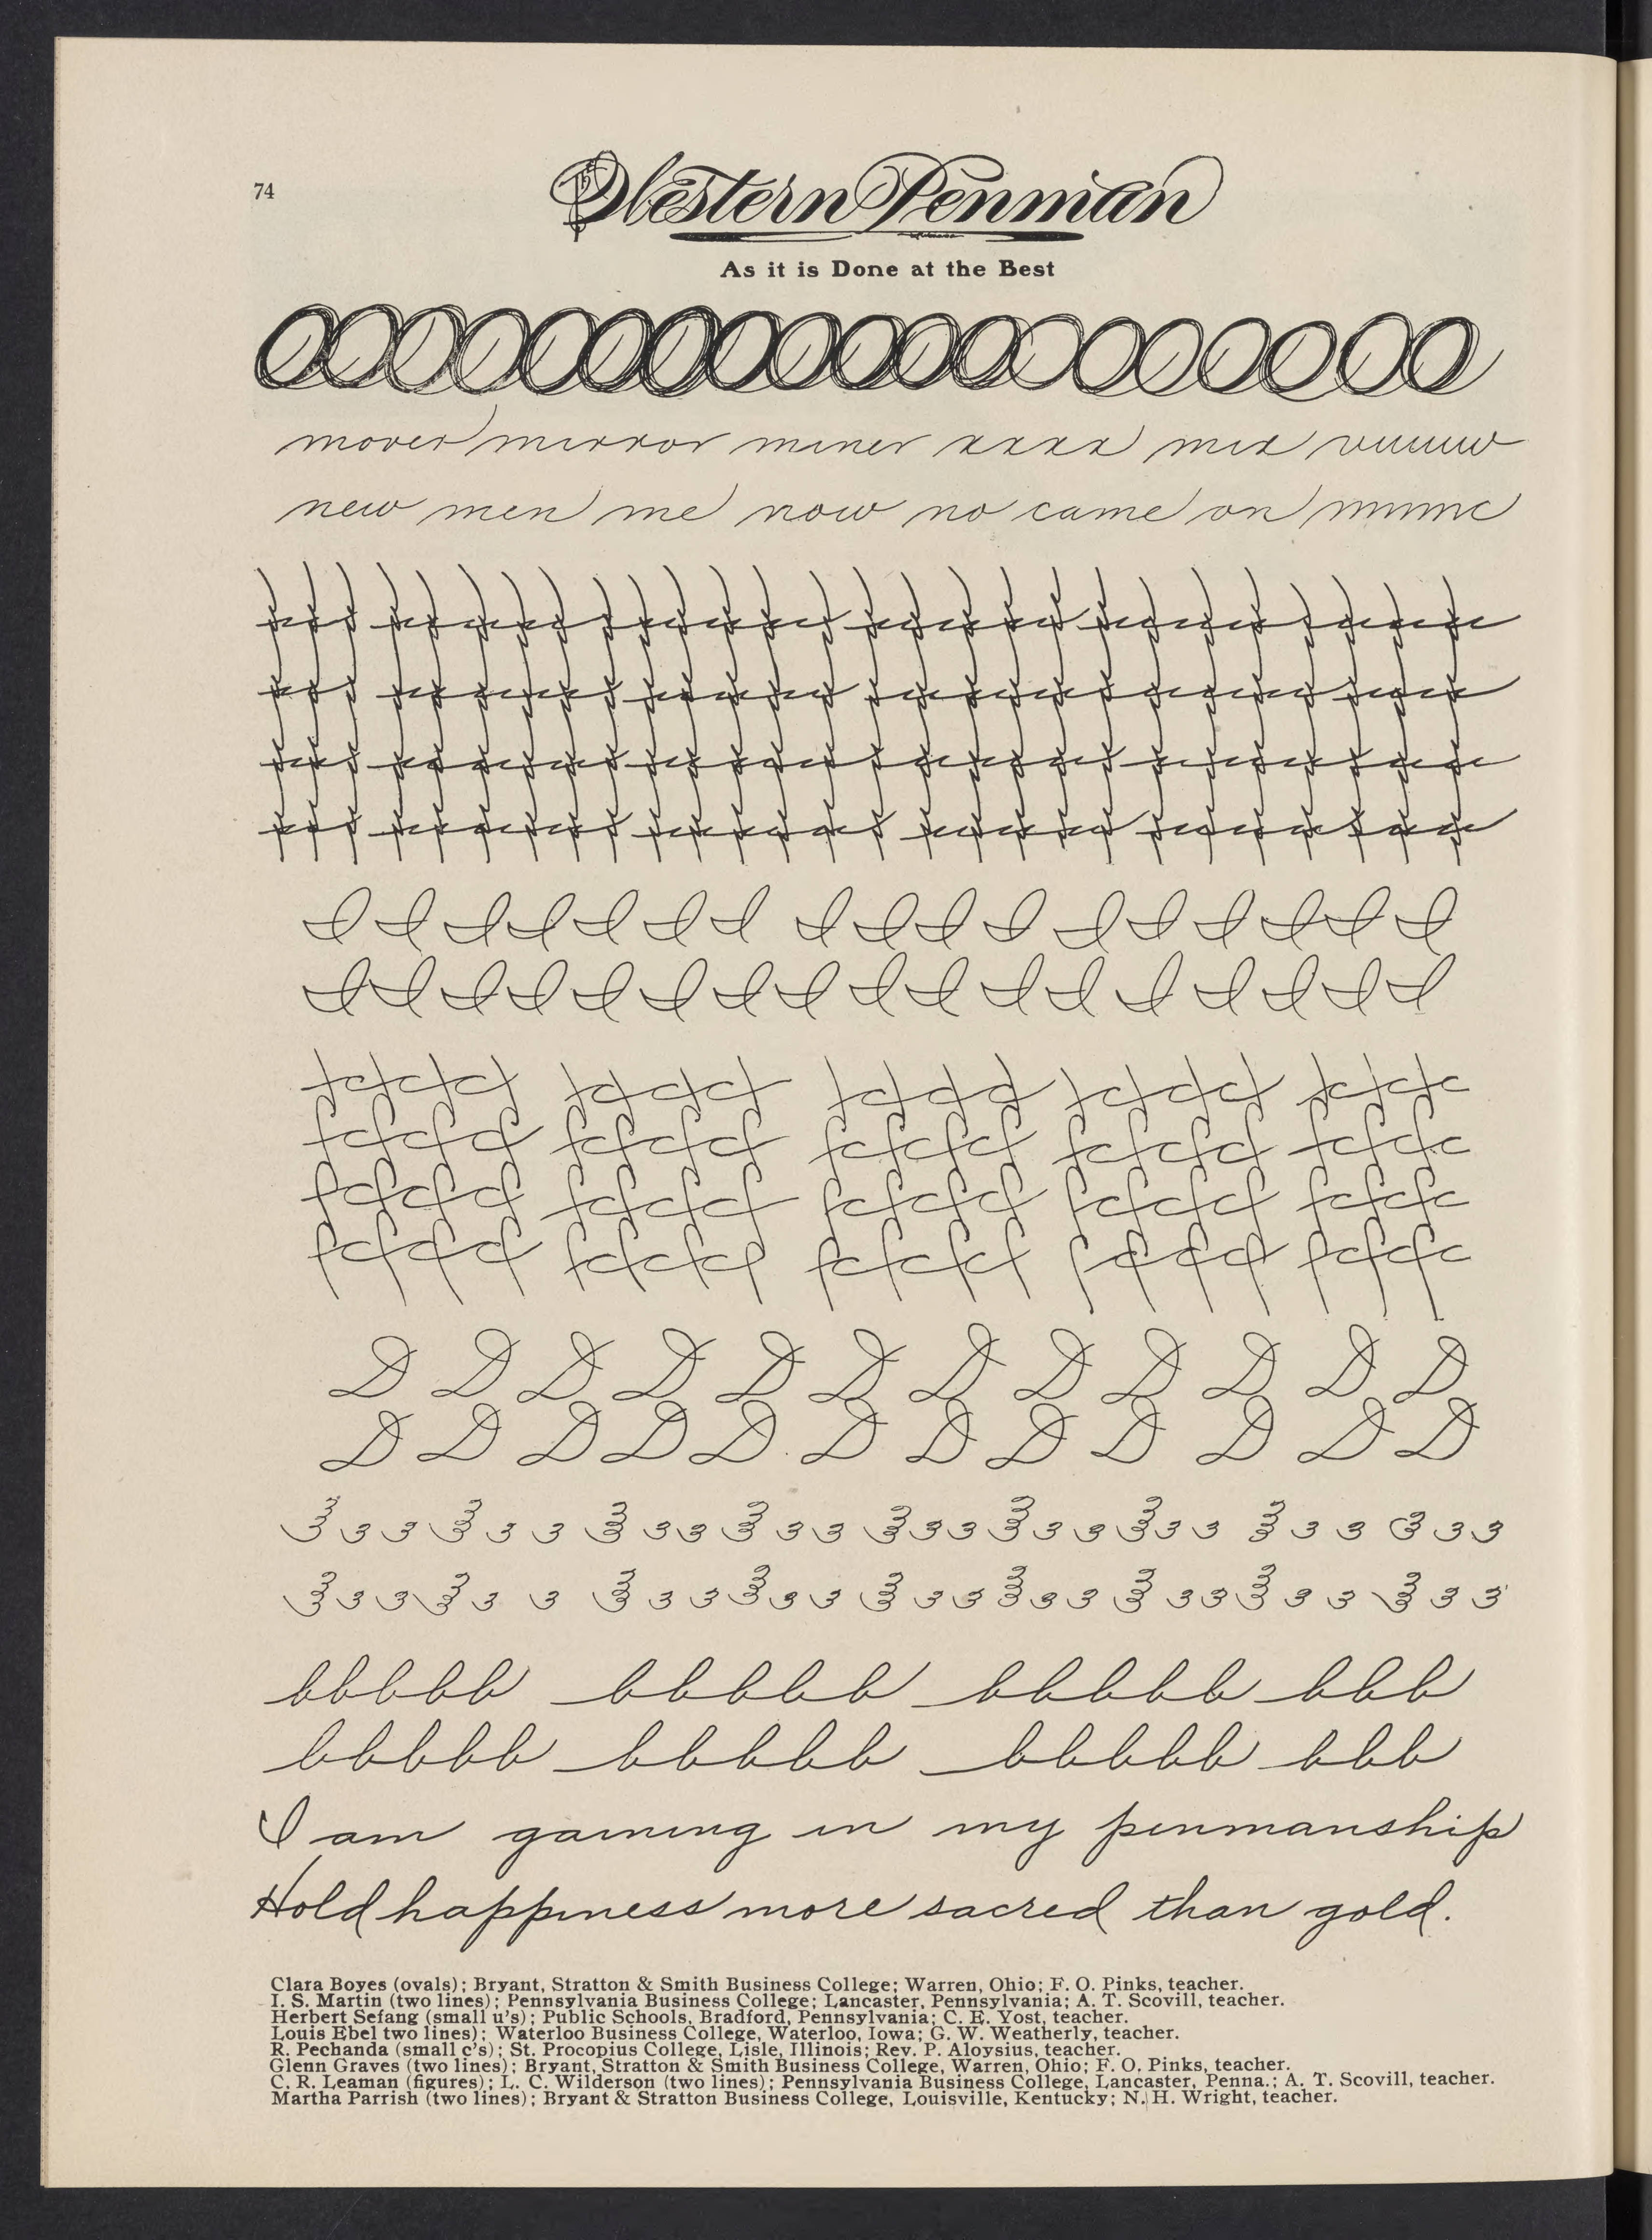 74
Western Penman
As it is Done at the Best
mover mirror miner xxxx mix vuuuw
new men me now no came on mmmc
I I I I I I I I I I I I I I I I I
I I I I I I I I I I I I I I I I I
D D D D D D D D D D D D
D D D D D D D D D D D D
bbbbb bbbbb bbbbb bbb
bbbbb bbbbb bbbbb bbb
I am gaining in my penmanship
Hold happiness more sacred than gold.
Clara Boyes (ovals); Bryant, Stratton & Smith Business College; Warren, Ohio; F. O. Pinks, teacher.
I. S. Martin (two lines); Pennsylvania Business College; Lancaster, Pennsylvania; A. T. Scovill, teacher.
Herbert Sefang (small u's); Public Schools, Bradford, Pennsylvania; C. E. Yost, teacher.
Louis Ebel two lines); Waterloo Business College, Waterloo, Iowa; G. W. Weatherly, teacher.
R. Pechanda (small c's); St. Procopius College, Lisle, Illinois; Rev. P. Aloysius, teacher.
Glenn Graves (two lines); Bryant, Stratton & Smith Business College, Warren, Ohio; F. O. Pinks, teacher.
C. R. Leaman (figures); L. C. Wilderson (two lines); Pennsylvania Business College, Lancaster, Penna.; A. T. Scovill, teacher.
Martha Parrish (two lines); Bryant & Stratton Business College, Louisville, Kentucky; N. H. Wright, teacher.